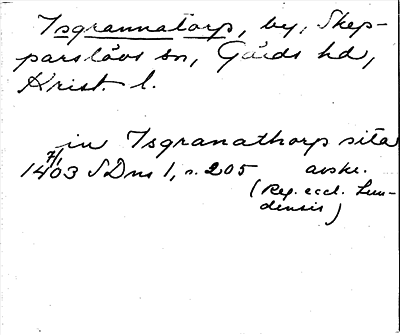 Isgrannatorp, by, Skep-
parslövs sn, Gärds hd,
Krist. l.
in Isgranathorp sita
7/1 1403 SDns 1, s. 205 avskr.
(Reg. eccl. Lun-
densis)